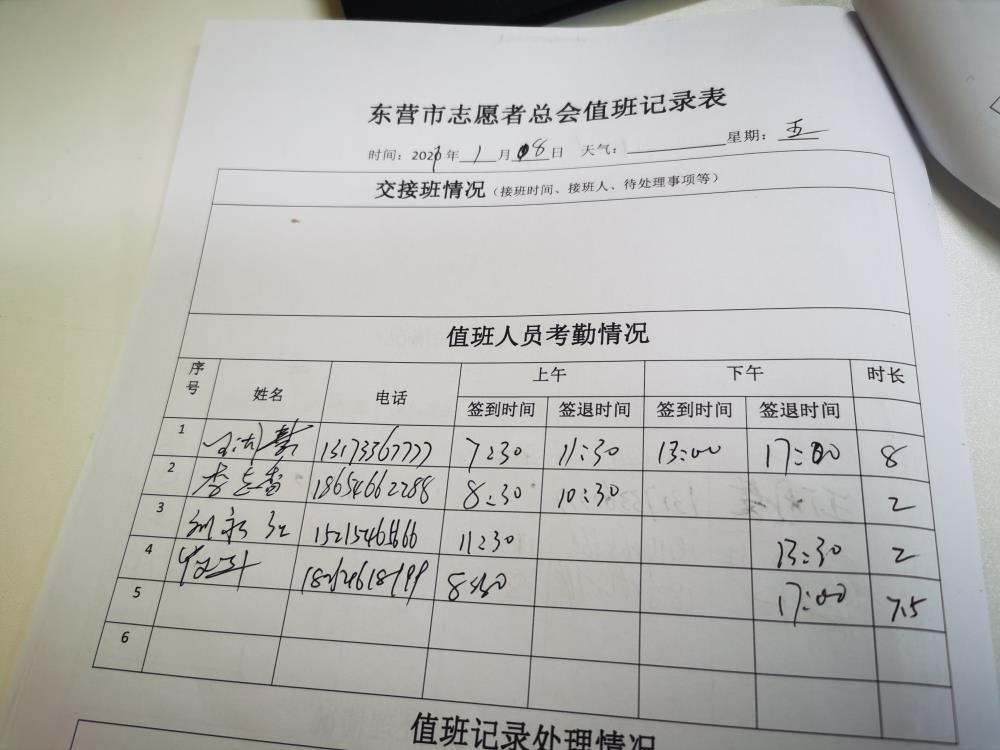 东营市志愿者总会值班记录表
时间：2021年1月08日 天气： 星期：五
交接班情况（接班时间、接班人、待处理事项等）
值班人员考勤情况
序号 姓名 电话 上午 下午 时长
签到时间 签退时间 签到时间 签退时间
1 13173367777 7:30 11:30 13:00 17:00 8
2 李志雷 18654662288 8:30 10:30 2
3 刘永红 11:30 13:30 2
4 8:30 17:00 7.5
5
6
值班记录处理情况